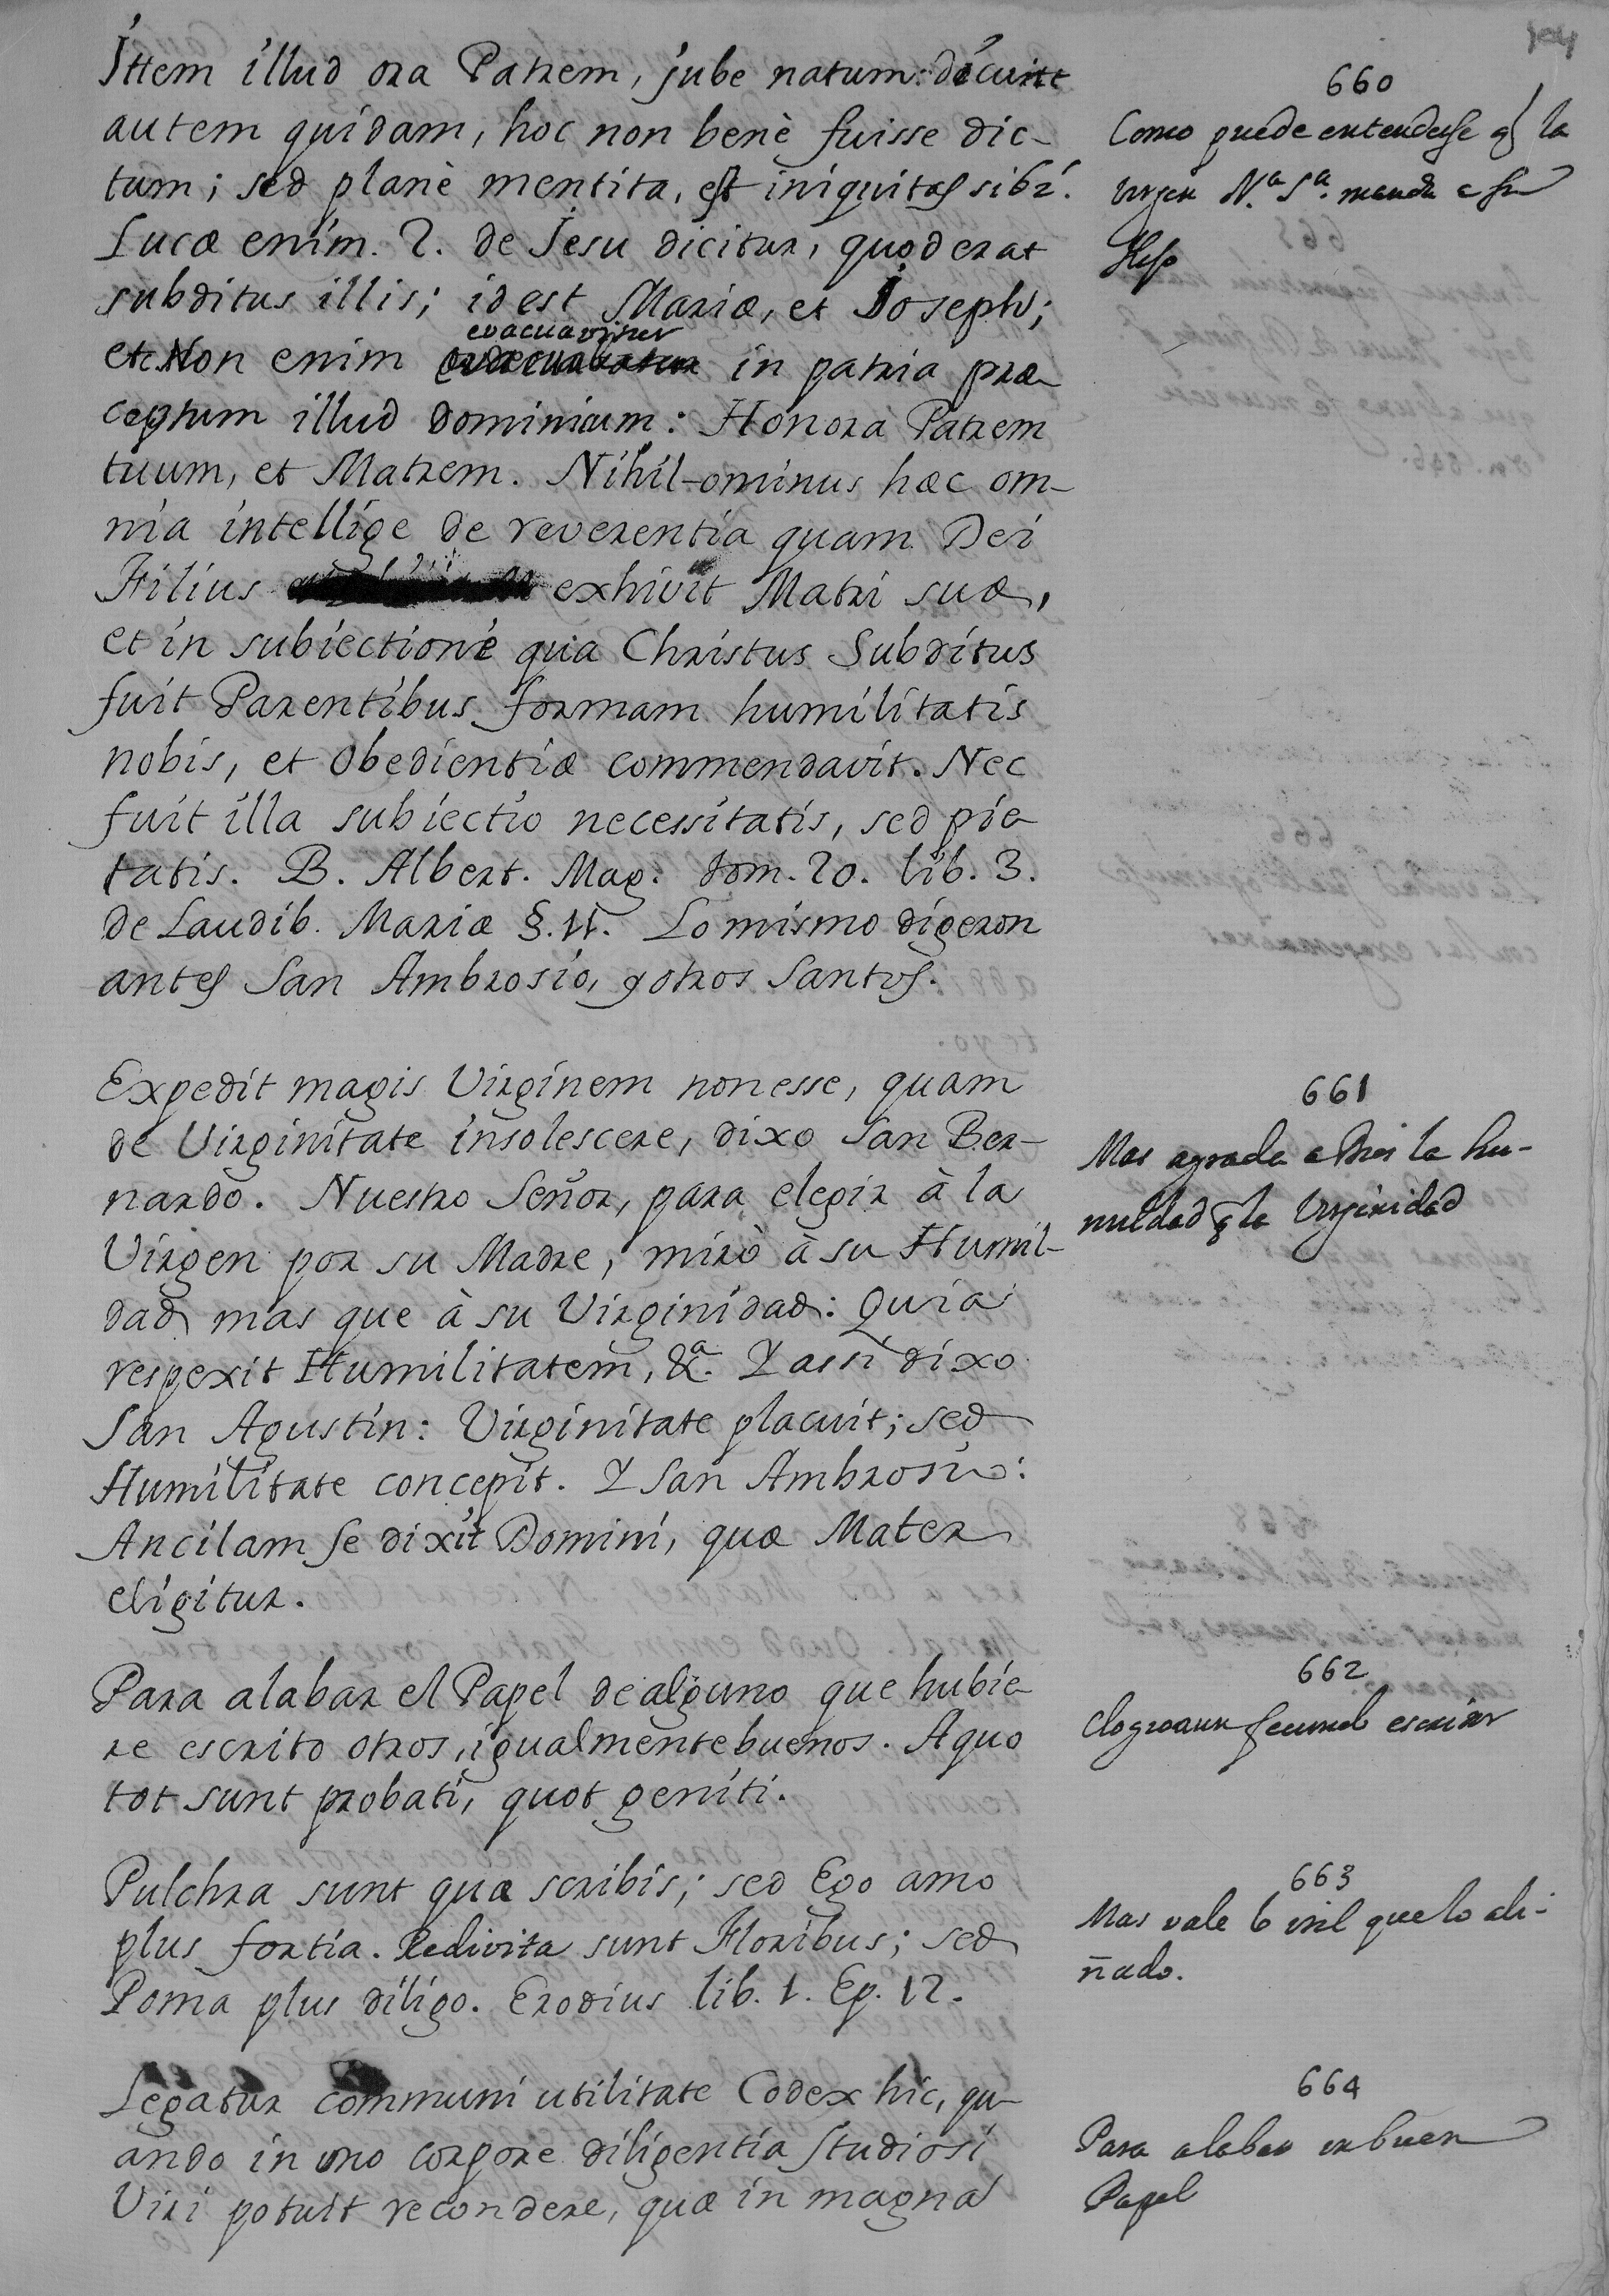 660
Ittem illud ora Patrem, jube natum: dicunt
autem quidam, hoc non benè fuisse dic-
tum; sed planè mentita, est iniquitas sibi.
Lucæ enim. 2. de Jesu dicitur, quod erat
subditus illis; id est Mariæ, et Joseph;
etc. Non enim evacuabitur in patria præ
ceptum illud dominicum: Honora Patrem
tuum, et Matrem. Nihil-ominus hæc om-
nia intellige de reverentia quam Dei
Filius exhivit Matri suæ,
et in subiectione quia Christus Subditus
fuit Parentibus formam humilitatis
nobis, et obedientiæ commendavit. Nec
fuit illa subiectio necessitatis, sed pie
tatis. B. Albert. Mag. tom. 20. lib. 3.
de Laudib. Mariæ §. 11. Lo mismo digeron
antes San Ambrosio, y otros Santos.
Como puede entenderse q la
Virgen N.ª S.ª manda a su
Hijo
661
Expedit magis Virginem non esse, quam
de Virginitate insolescere, dixo San Ber-
nardo. Nuestro Señor, para elegir à la
Virgen por su Madre, mirò à su Humil-
dad mas que à su Virginidad: Quia
respexit Humilitatem, &ª. Y assi dixo
San Agustin: Virginitate placuit; sed
Humilitate concepit. Y San Ambrosio:
Ancilam se dixit Domini, quæ Mater
eligitur.
Mas agrada a Dios la hu-
mildad q la Virginidad
662
Para alabar el Papel de alguno que hubie
re escrito otros, igualmente buenos. Aquo
tot sunt probati, quot geniti.
Elogio a un fecundo escritor
663
Pulchra sunt quæ scribis; sed Ego amo
plus fortia. Redivita sunt Floribus; sed
Poma plus diligo. Erodius lib. 1. Ep. 12.
Mas vale lo util que lo ali-
ñado.
664
Legatur communi utilitate Codex hic, qu-
ando in uno corpore diligentia studiosi
Viri potuit recondere, quæ in magna
Para alabar un buen
Papel